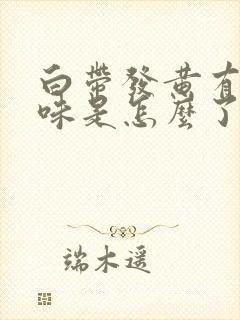 白带發黄有
味是怎麼了
端木遥